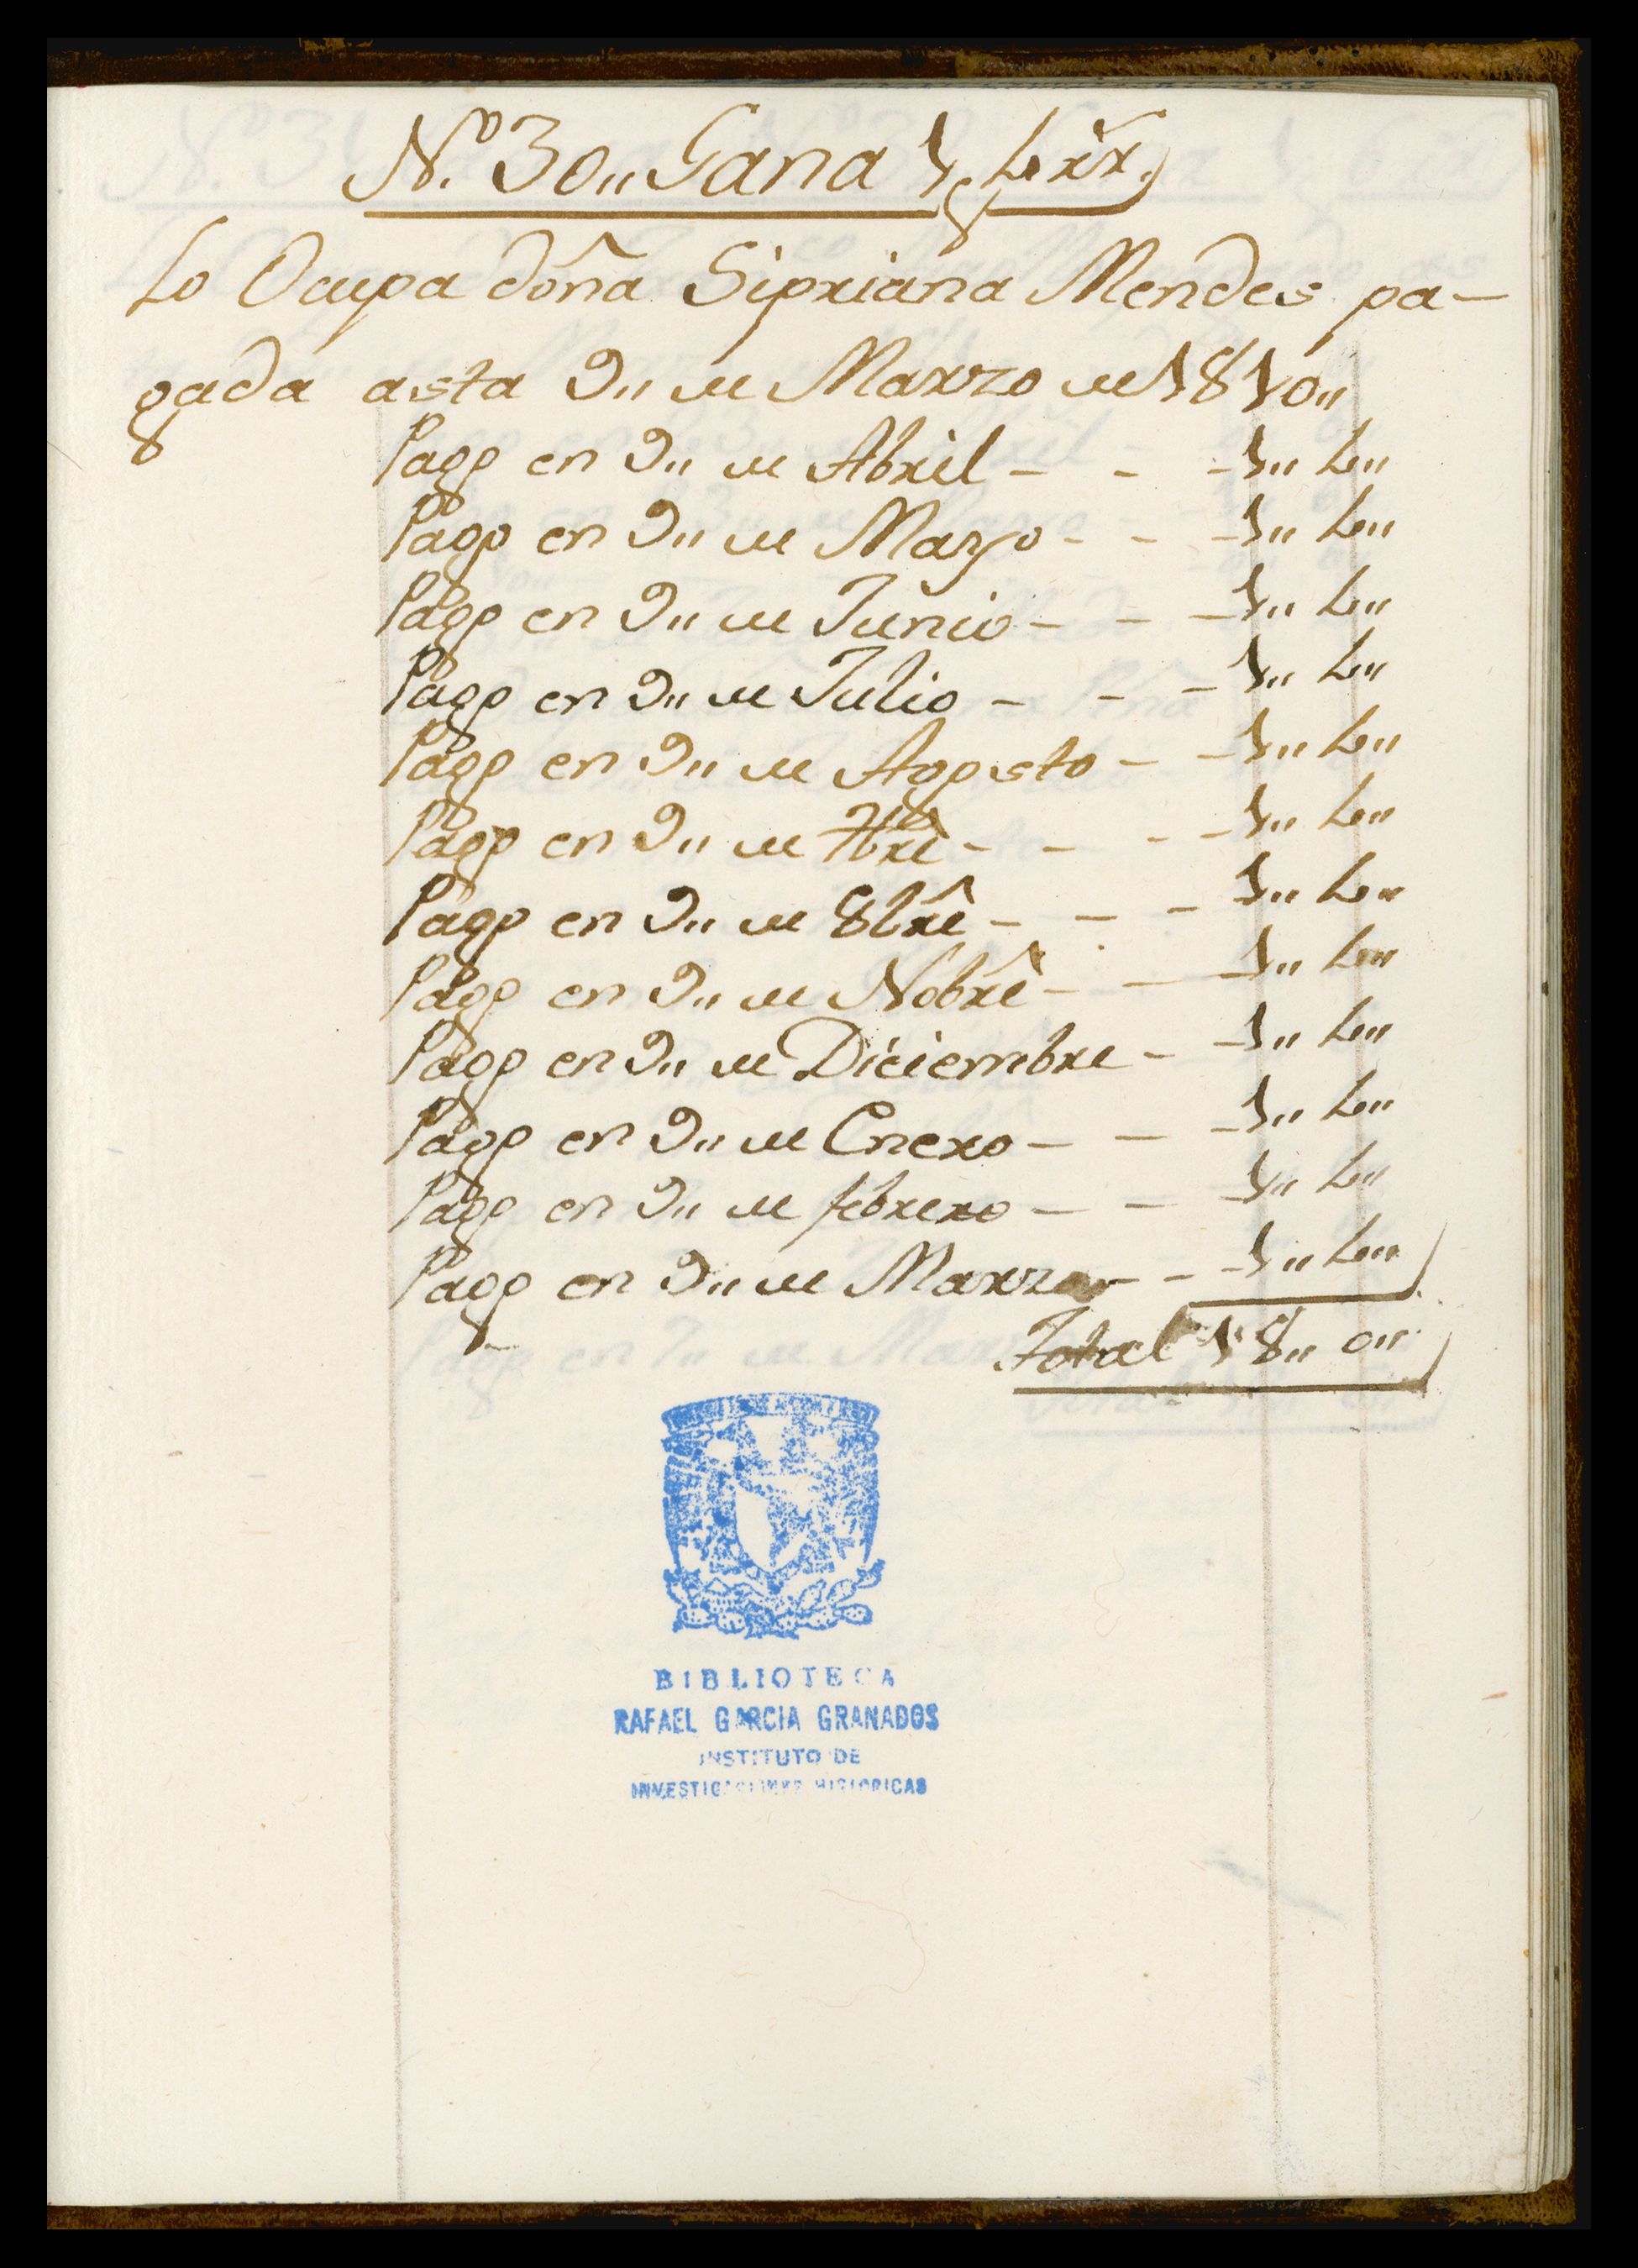 Nº. 30,, Gana 1 p 4 rr.
Lo Ocupa doña Sipriana Mendes pa-
gada asta 9,, de Marzo de 1810,,
Pago en 9,, de Abril - - - 1,, 4,,
Pago en 9,, de Mayo - - - 1,, 4,,
Pago en 9,, de Junio - - - 1,, 4,,
Pago en 9,, de Julio - - - 1,, 4,,
Pago en 9,, de Agosto - - 1,, 4,,
Pago en 9,, de 7bre - - - - 1,, 4,,
Pago en 9,, de 8bre - - - 1,, 4,,
Pago en 9,, de Nobre - - - 1,, 4,,
Pago en 9,, de Diciembre - - 1,, 4,,
Pago en 9,, de Enero - - - 1,, 4,,
Pago en 9,, de febrero - - - 1,, 4,,
Pago en 9,, de Marzo - - - 1,, 4,,
Total 18,, 0,,
BIBLIOTECA
RAFAEL GARCIA GRANADOS
INSTITUTO DE
INVESTIGACIONES HISTORICAS